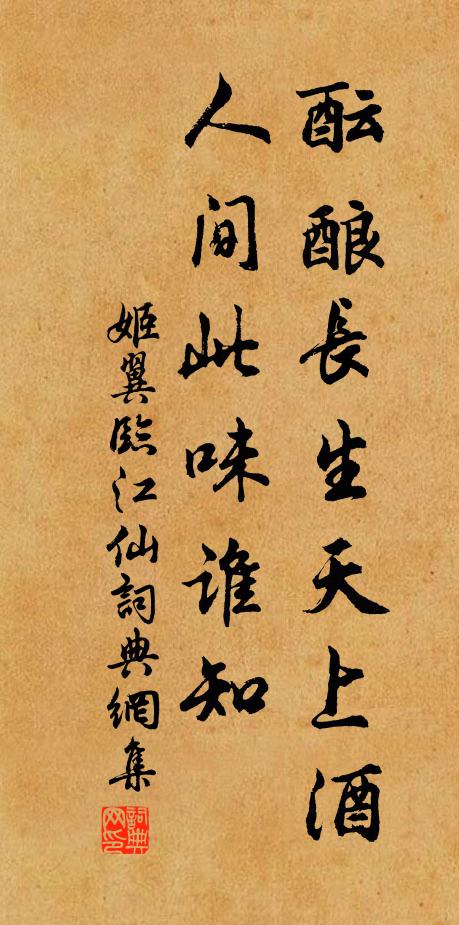 酝酿長生天上酒
人间此味谁知
姬翼臨江仙詞典網集
詞典网印